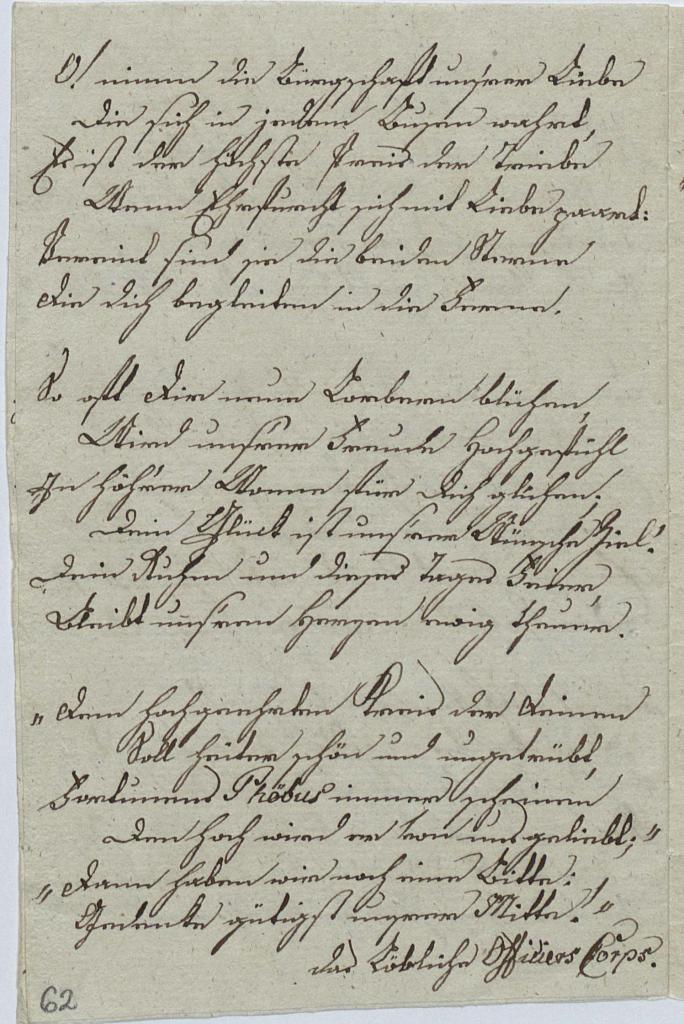 O! nimm die Bürgschaft unsrer Liebe
Die sich in jedem Busen wahrt,
Es ist der höchste Preis der Triebe
Wenn Ehrfurcht sich mit Liebe paart:
Vereint sind sie die beiden Sterne
die dich begleiten in die Ferne.
So oft Dir neue Lorbern blühen,
Wird unsrer Freude Hochgefühl
In höh'rer Wonne für Dich glühen;
Dein Glück ist unsrer Wünsche Ziel!
Dein Ruhm und dieses Tages Feier,
Bleibt unsren Herzen ewig theuer.
„Dem hochgeehrten Kreis der Deinen
Soll heiter schön und ungetrübt,
Fortunens Phöbus immer scheinen
Den hoch wird er von uns geliebt;"
„Dann haben wir noch eine Bitte:
Gedenke gütigst unsrer Mitte!"
das Löbliche Officiers Corps.
62